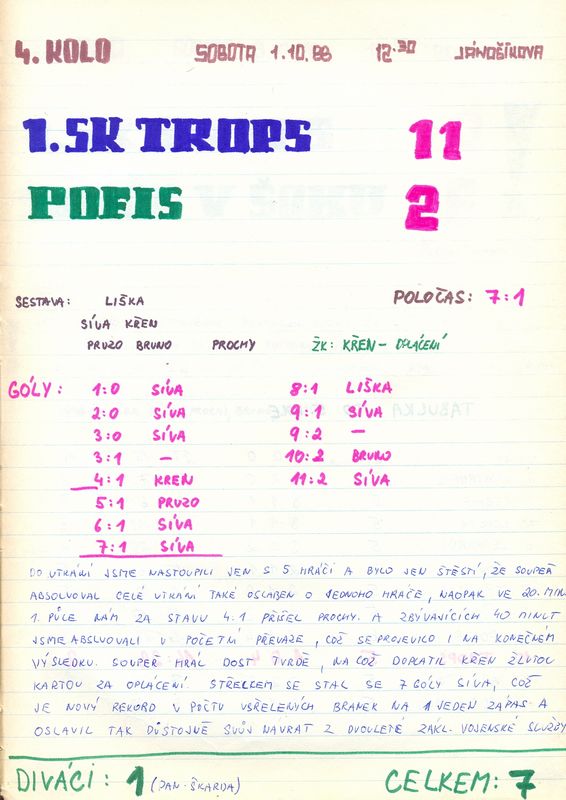 4. KOLO SOBOTA 1.10.88 12.30 JÁNOŠÍKOVA
1.SK TROPS 11
POFIS 2
SESTAVA: LIŠKA POLOČAS: 7:1
SÍVA KŘEN
PRUZO BRUNO PROCHY ŽK: KŘEN - OPLÁCENÍ
GÓLY: 1:0 SÍVA 8:1 LIŠKA
2:0 SÍVA 9:1 SÍVA
3:0 SÍVA 9:2 —
3:1 — 10:2 BRUNO
4:1 KŘEN 11:2 SÍVA
5:1 PRUZO
6:1 SÍVA
7:1 SÍVA
DO UTKÁNÍ JSME NASTOUPILI JEN S 5 HRÁČI A BYLO JEN ŠTĚSTÍ, ŽE SOUPEŘ
ABSOLVOVAL CELÉ UTKÁNÍ TAKÉ OSLABEN O JEDNOHO HRÁČE, NAOPAK VE 20. MIN.
1. PŮLE NÁM ZA STAVU 4:1 PŘIŠEL PROCHY. A ZBÝVAJÍCÍCH 40 MINUT
JSME ABSLVOVALI V POČETNÍ PŘEVAZE, COŽ SE PROJEVILO I NA KONEČNÉM
VÝSLEDKU. SOUPEŘ HRÁL DOST TVRDĚ, NA COŽ DOPLATIL KŘEN ŽLUTOU
KARTOU ZA OPLÁCENÍ. STŘELCEM SE STAL SE 7 GÓLY SÍVA, COŽ
JE NOVÝ REKORD V POČTU VSŘELENÝCH BRANEK NA 1 JEDEN ZÁPAS A
OSLAVIL TAK DŮSTOJNĚ SVŮJ NÁVRAT Z DVOULETÉ ZÁKL. VOJENSKÉ SLUŽBY
DIVÁCI: 1 (JAN ŠKARDA) CELKEM: 7